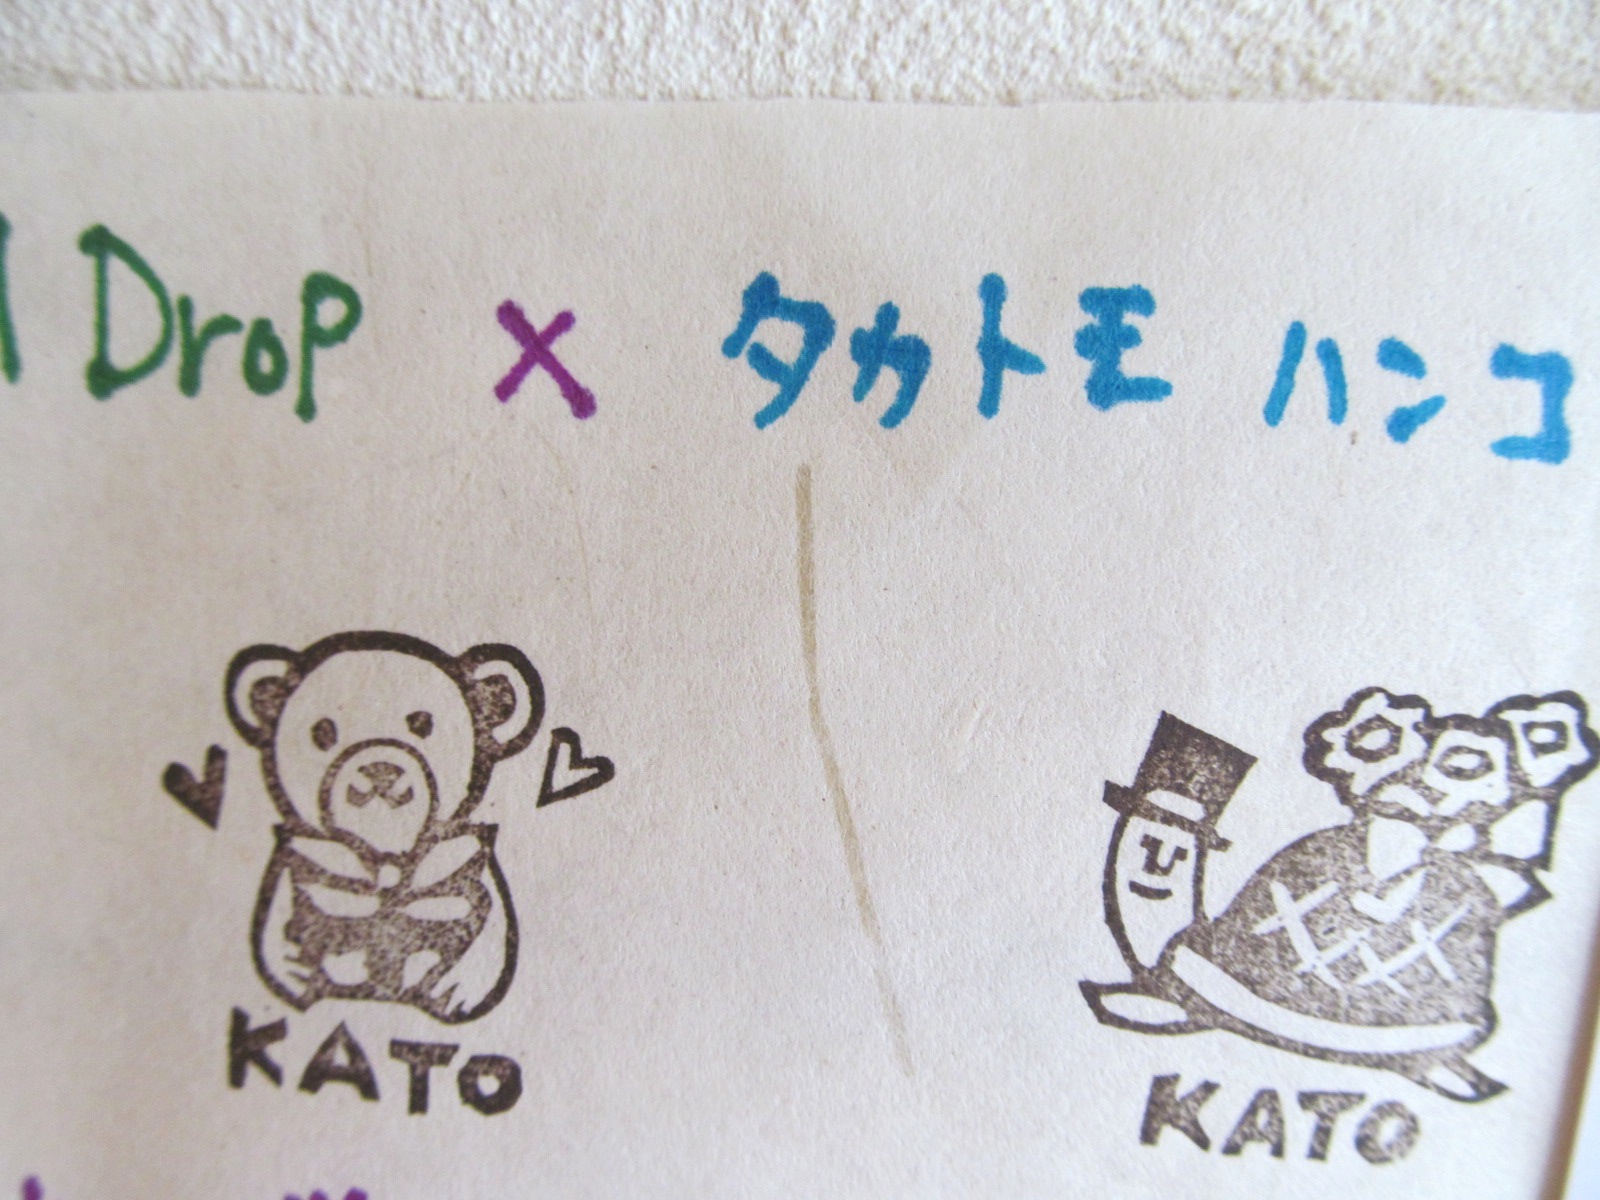 Drop × タカトモ ハンコ
KATO
KATO